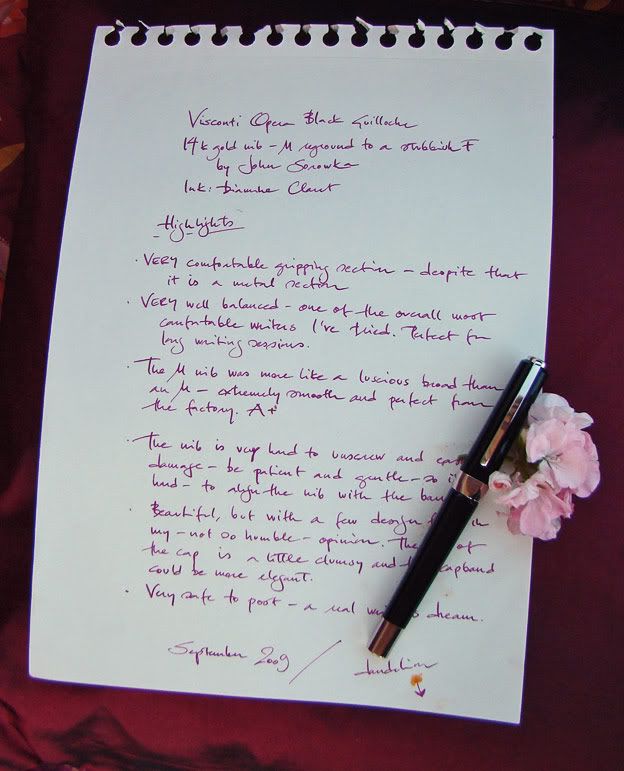 Visconti Opera Black Guilloche
14k gold nib - M reground to a stubbish F
by John Sorowka
Ink: Diamine Claret
Highlights
· VERY comfortable gripping section - despite that
it is a metal section
· VERY well balanced - one of the overall most
comfortable writers I've tried. Perfect for
long writing sessions.
· The M nib was more like a luscious broad than
an M - extremely smooth and perfect from
the factory. A+
· The nib is very hard to unscrew and
damage - be patient and gentle - so
hard - to align the nib with the
· Beautiful, but with a few design
my - not so humble - opinion. The of
the cap is a little clumsy and capband
could be more elegant.
· Very safe to post - a real dream.
September 2009 / dandelion